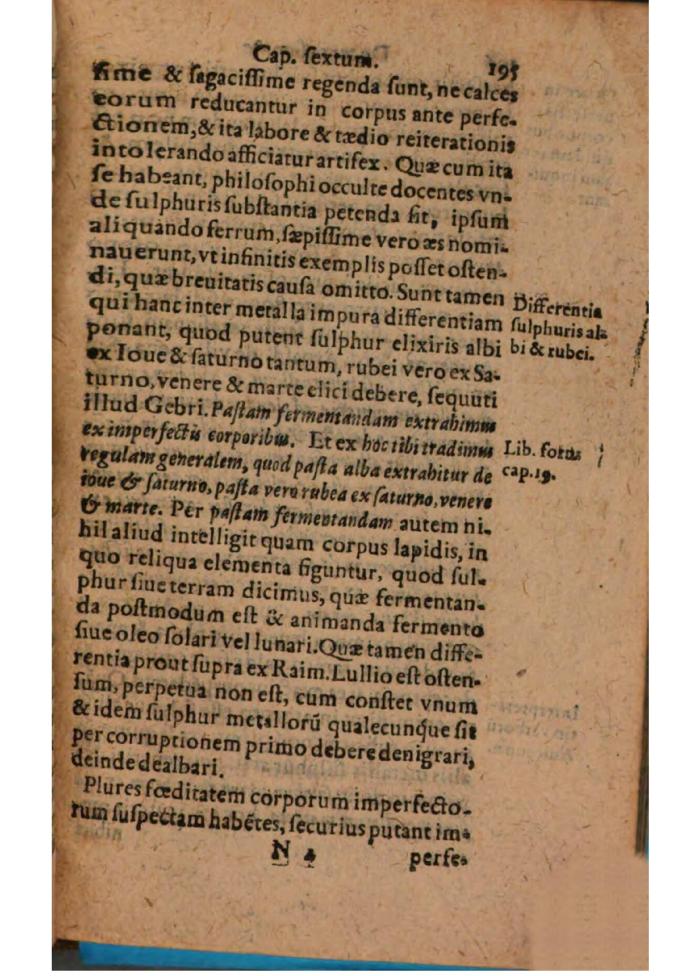 Cap. ſextum. 195
ſime & ſagaciſſime regenda ſunt, ne calces
eorum reducantur in corpus ante perfe-
ctionem, & ita labore & tædio reiterationis
intolerando afficiatur artifex. Quæ cum ita
ſe habeant, philoſophi occulte docentes vn-
de ſulphuris ſubſtantia petenda ſit, ipſum
aliquando ferrum, ſæpiſſime vero æs nomi-
nauerunt, vt infinitis exemplis poſſet oſten-
di, quæ breuitatis cauſa omitto. Sunt tamen
qui hanc inter metalla impura differentiam
ponant, quod putent ſulphur elixiris albi
ex Ioue & ſaturno tantum, rubei vero ex Sa-
turno, venere & marte elici debere, ſequuti
illud Gebri. Paſtam fermentandam extrahimus
ex imperfectis corporibus. Et ex hoc tibi tradimus
regulam generalem, quod paſta alba extrahitur de
ioue & ſaturno, paſta vero rubea ex ſaturno, venere
& marte. Per paſtam fermentandam autem ni-
hil aliud intelligit quam corpus lapidis, in
quo reliqua elementa figuntur, quod ſul-
phur ſiue terram dicimus, quæ fermentan-
da poſtmodum eſt & animanda fermento
ſiue oleo ſolari vel lunari. Quæ tamen diffe-
rentia prout ſupra ex Raim. Lullio eſt oſten-
ſum, perpetua non eſt, cum conſtet vnum
& idem ſulphur metallorū qualecunque ſit
per corruptionem primo debere denigrari,
deinde dealbari.
Plures fœditatem corporum imperfecto-
rum ſuſpectam habētes, ſecurius putant im-
N 4 perfe-
Differentia
ſulphuris al-
bi & rubei.
Lib. forna
cap. 19.